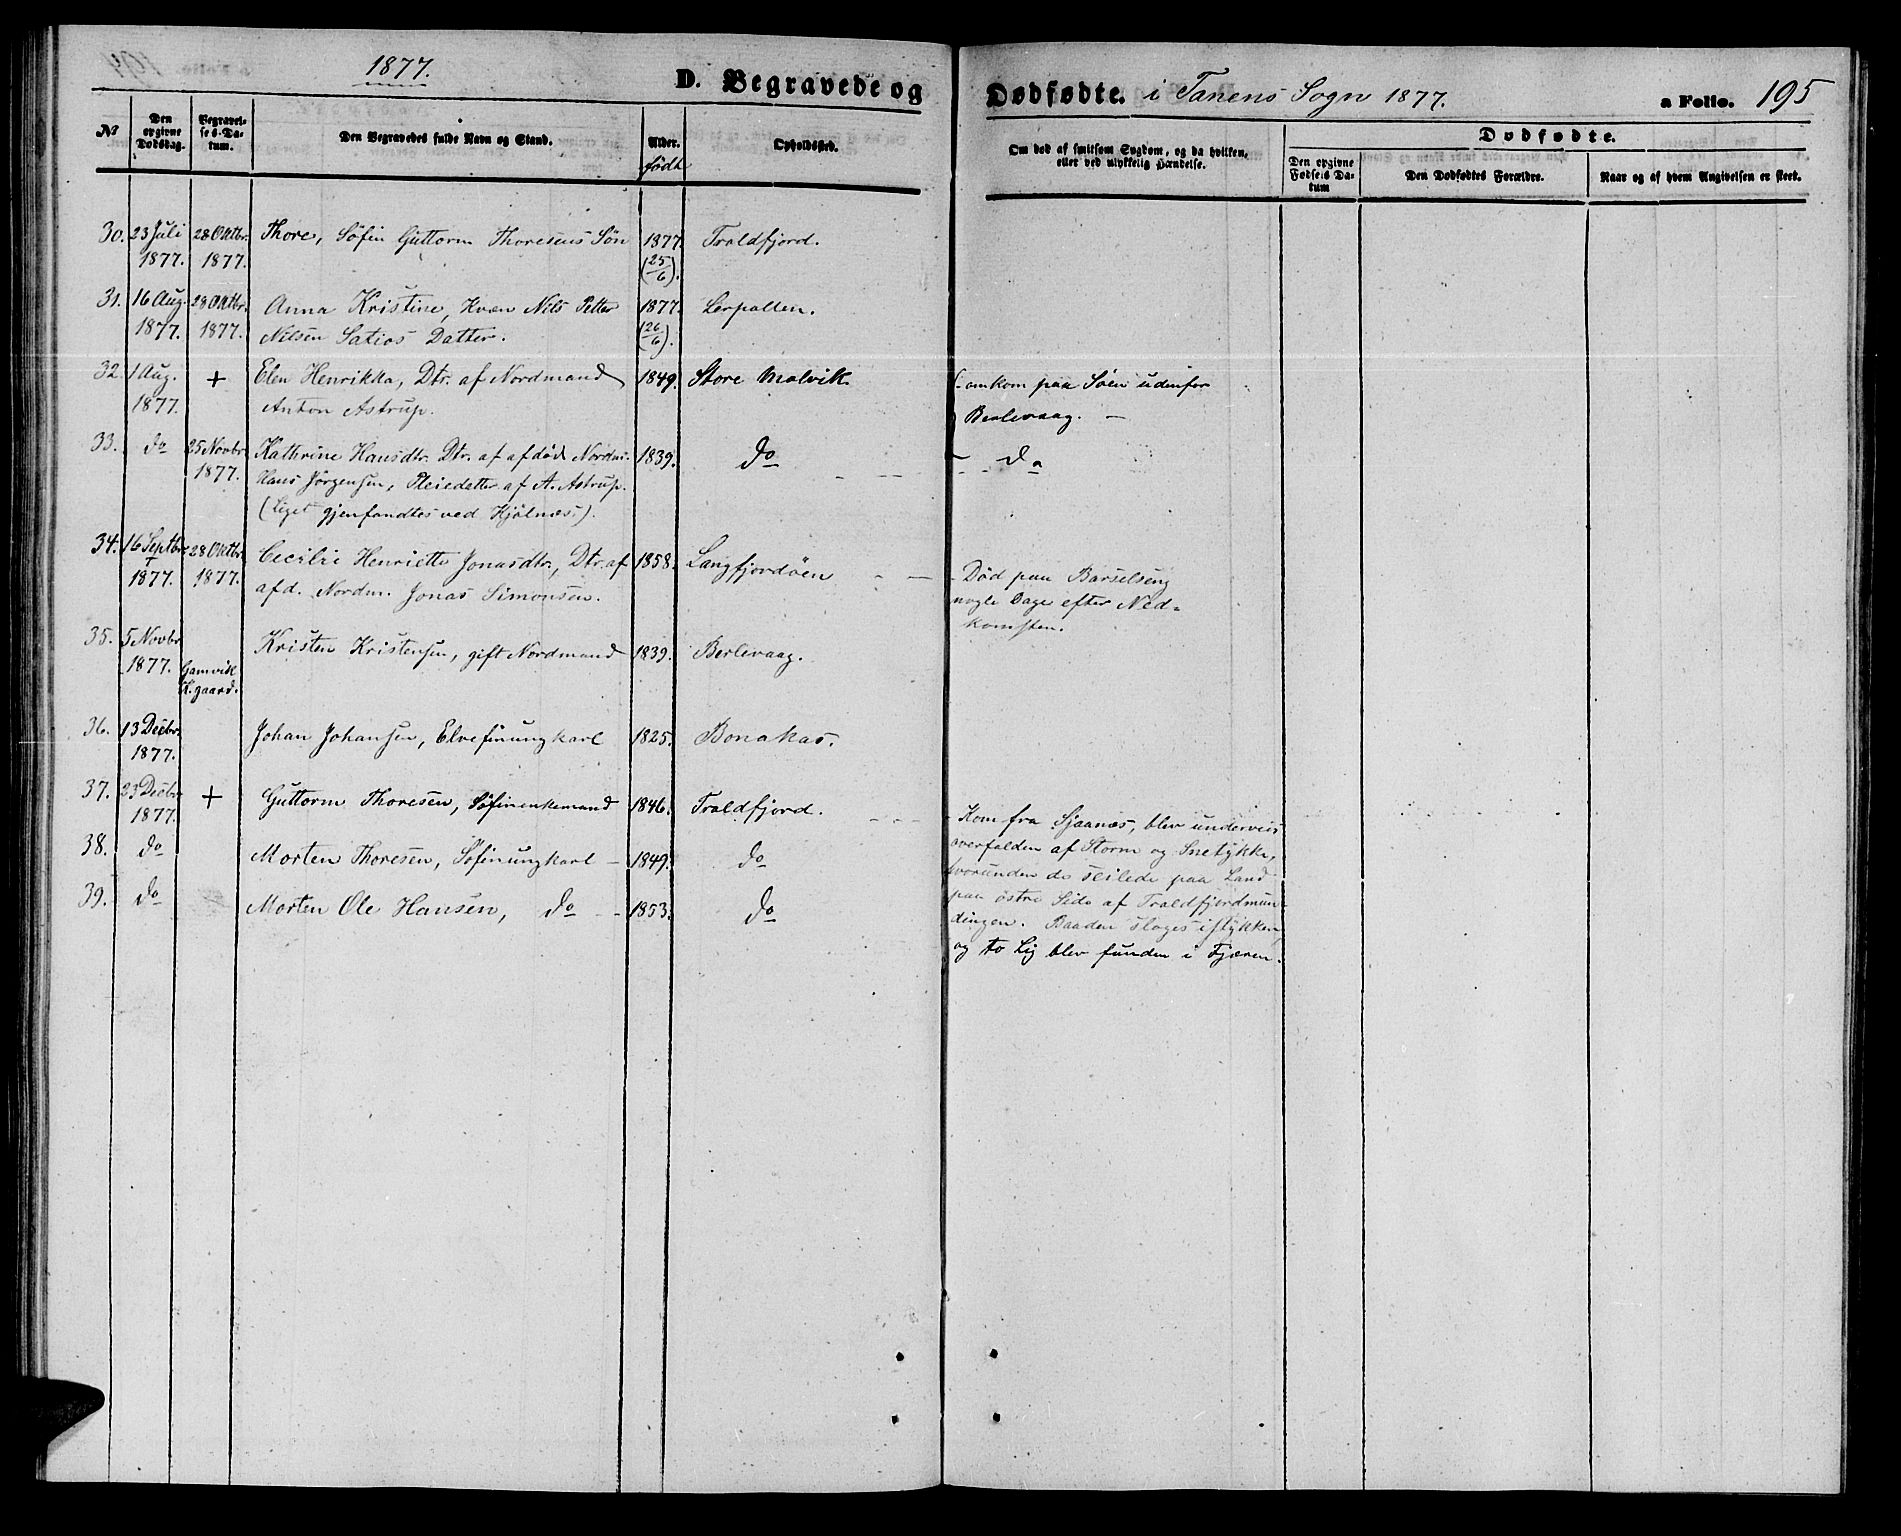 1877.
D. Begravede og
Dødfødte. i Tanens Sogn 1877.
a Folio. 195
No
Den opgivne Dødsdag.
Begravelses-Datum.
Den Begravedes fulde Navn og Stand.
Alder.
født
Opholdssted.
Om død af smitsom Sygdom, og da hvilken,
eller ved ulykkelig Hændelse.
Dødfødte.
Den opgivne Fødsels Datum
Den Dødfødtes Forældre.
Naar og af hvem Angivelsen er skeet.
30. 23 Juli 28 Oktbr. Thore, Søfin Guttorm Thoresens Søn 1877. Traldfjord.
1877. 1877. (25/6).
31. 16 Aug. 28 Oktbr. Anna Kristine, Kvæn Nils Petter 1877. Lerpollen.
1877. 1877. Nilsen Satios Datter. (26/6).
32. 1 Aug. + Elen Henrikka, Dtr. af Nordmand 1849. Store Molvik. omkom paa Søen udenfor
1877. Anton Astrup. Berlevaag. —
33. do 25 Novbr. Kathrine Hansdtr. Dtr. af afdød Nordm. 1839. do — do
1877. Hans Jørgensen, Pleiedatter af A. Astrup.
(Liget gjenfandtes ved Kjølnæs).
34. 16 Septbr. 28 Oktbr. Cecilie Henriette Jonasdtr., Dtr. af 1858. Langfjordøen — Død paa Barselseng
1877. 1877. afd. Nordm. Jonas Simonsen. nogle Dage efter Ned=
komsten.
35. 5 Novbr. Kristen Kristensen, gift Nordmand 1839. Berlevaag.
1877. Gamvik
K.gaard.
36. 13 Decbr. Johan Johansen, Elvefinungkarl 1825. Bonakas.
1877.
37. 23 Decbr. + Guttorm Thoresen, Søfinenkemand 1846. Traldfjord. — Kom fra Sjaanæs, blev underveis
1877.
38. do Morten Thoresen, Søfinungkarl — 1849. do overfalden af Storm og Snetykke,
hvorunder de seilede paa Land
39. do Morten Ole Hansen, do — 1853. do paa østre Side af Traldfjordmun-
dingen. Baaden sloges istykker,
og to Lig blev funden i Fjæren.